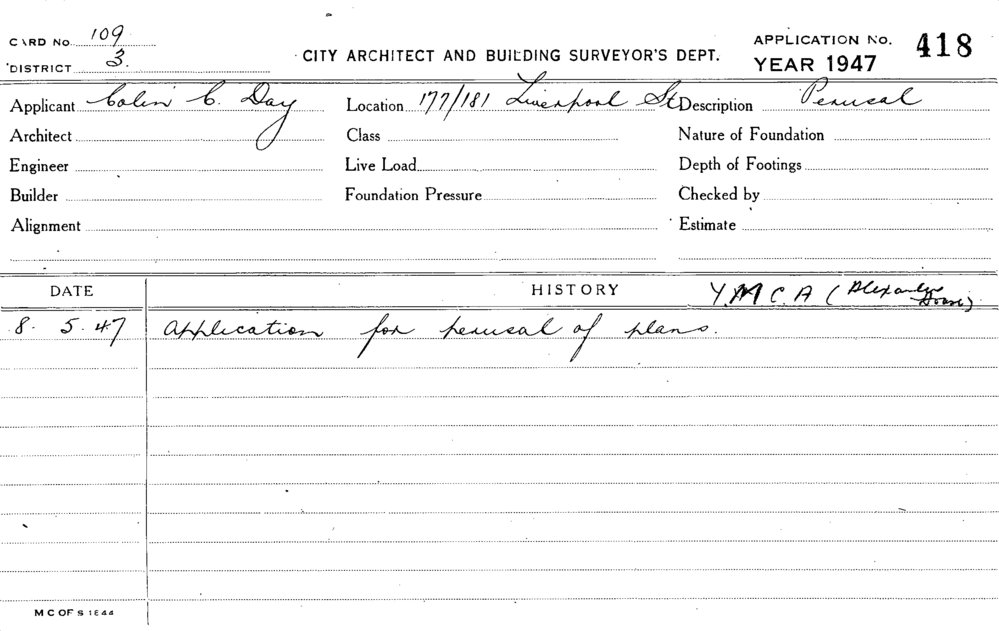 CARD No. 109
DISTRICT 3.
CITY ARCHITECT AND BUILDING SURVEYOR'S DEPT.
APPLICATION No. 418
YEAR 1947
Applicant Colin C. Day Location 177/181 Liverpool St Description Perusal
Architect Class Nature of Foundation
Engineer Live Load Depth of Footings
Builder Foundation Pressure Checked by
Alignment Estimate
DATE HISTORY Y.M C. A (Alexander
House)
8. 5. 47 Application for perusal of plans.
M C OF S 1844